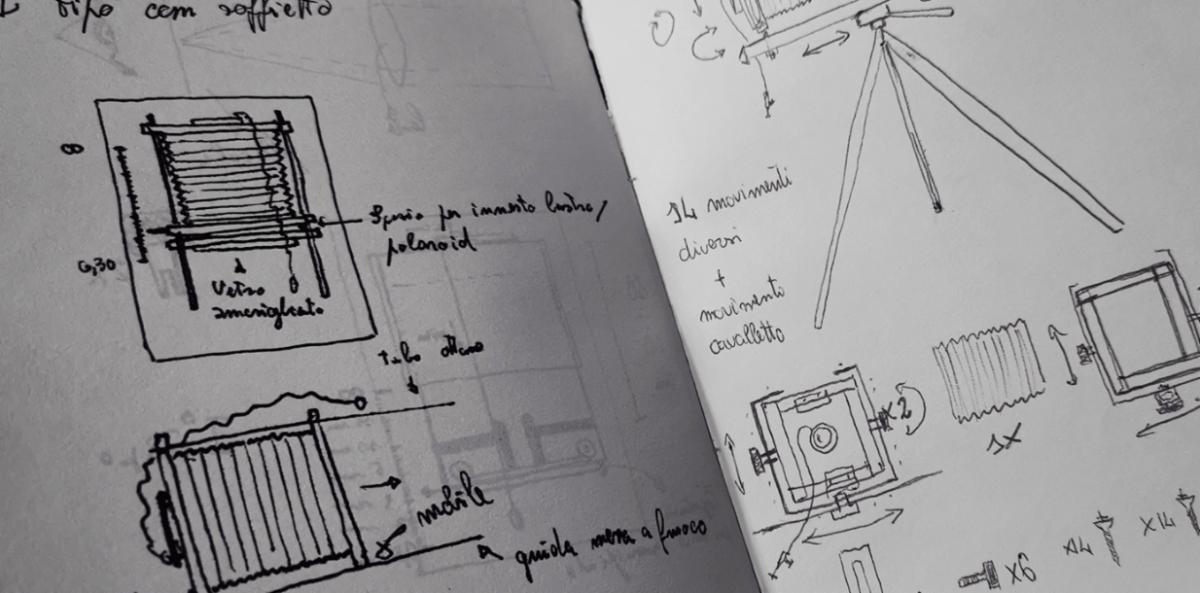 tipo con soffietto
∞
0,30
Spazio per innesto lastra/
polaroid
Vetro
smerigliato
tubo ottone
mobile
guida messa a fuoco
14 movimenti
diversi
+
movimento
cavalletto
x2
1X
x6
x4
x14